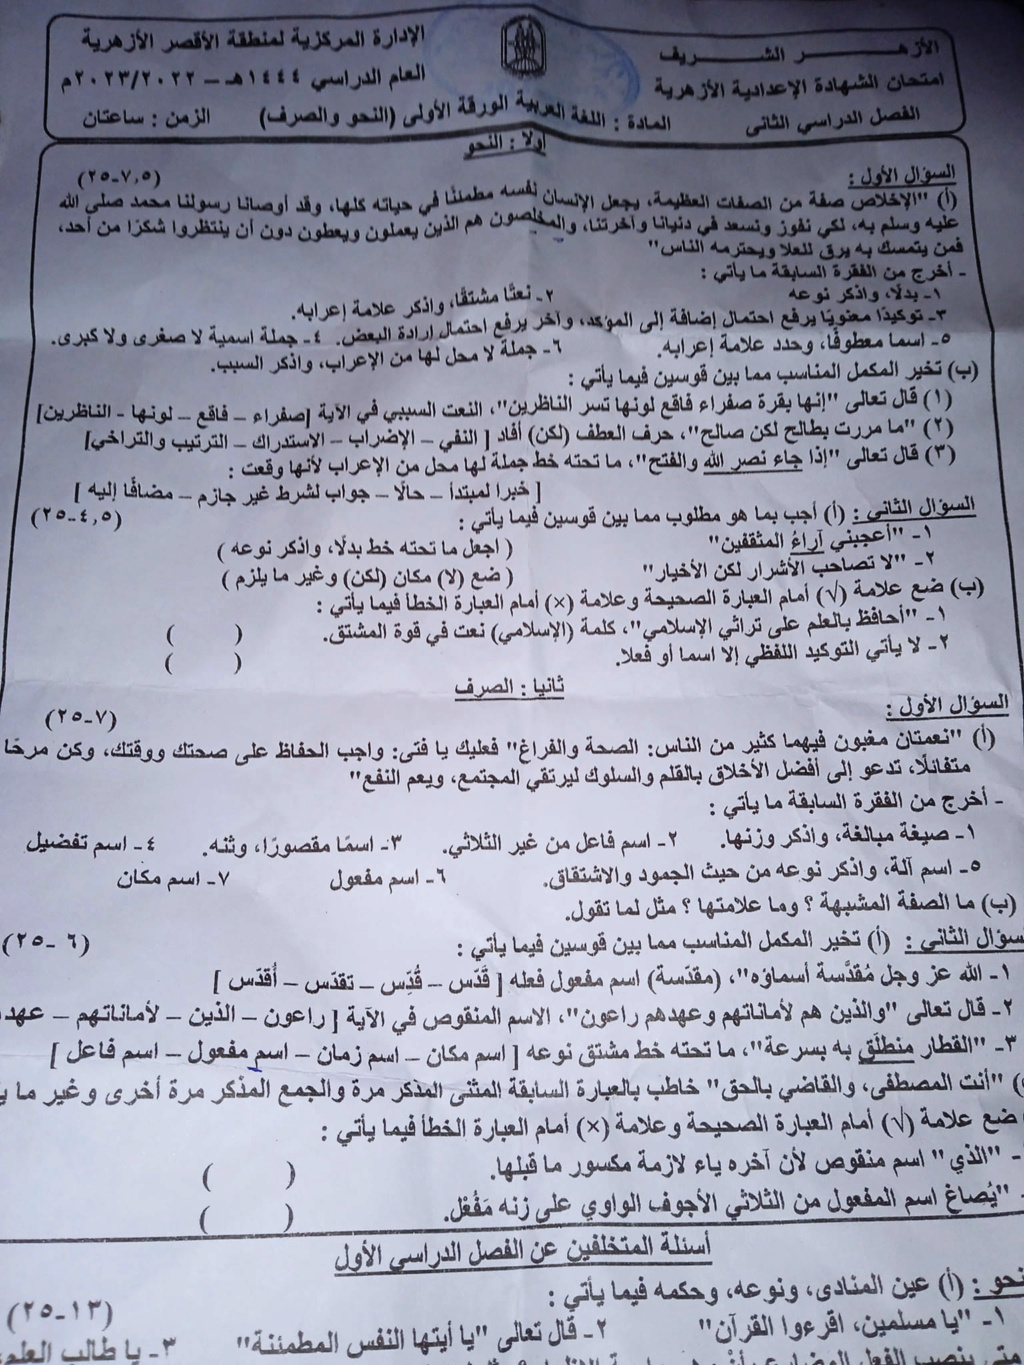 الأزهر الشريف
امتحان الشهادة الإعدادية الأزهرية
الفصل الدراسي الثانى
الإدارة المركزية لمنطقة الأقصر الأزهرية
العام الدراسي ١٤٤٤هـ – ٢٠٢٣/٢٠٢٢م
المادة : اللغة العربية الورقة الأولى (النحو والصرف) الزمن : ساعتان
أولا : النحو
السؤال الأول : (٧,٥-٢٥)
(أ) "الإخلاص صفة من الصفات العظيمة، يجعل الإنسان نفسه مطمئنًا في حياته كلها، وقد أوصانا رسولنا محمد صلى الله
عليه وسلم به، لكي نفوز ونسعد في دنيانا وآخرتنا، والمخلصون هم الذين يعملون ويعطون دون أن ينتظروا شكرًا من أحد،
فمن يتمسك به يرق للعلا ويحترمه الناس"
- أخرج من الفقرة السابقة ما يأتي :
١- بدلًا، واذكر نوعه ٢- نعتًا مشتقًا، واذكر علامة إعرابه.
٣- توكيدًا معنويًا يرفع احتمال إضافة إلى المؤكد، وآخر يرفع احتمال إرادة البعض. ٤- جملة اسمية لا صغرى ولا كبرى.
٥- اسما معطوفًا، وحدد علامة إعرابه. ٦- جملة لا محل لها من الإعراب، واذكر السبب.
(ب) تخير المكمل المناسب مما بين قوسين فيما يأتي :
(١) قال تعالى "إنها بقرة صفراء فاقع لونها تسر الناظرين"، النعت السببي في الآية [صفراء – فاقع – لونها - الناظرين]
(٢) "ما مررت بطالح لكن صالح"، حرف العطف (لكن) أفاد [ النفي – الإضراب – الاستدراك – الترتيب والتراخي]
(٣) قال تعالى "إذا جاء نصر الله والفتح"، ما تحته خط جملة لها محل من الإعراب لأنها وقعت :
[ خبرا لمبتدأ – حالًا – جواب لشرط غير جازم – مضافًا إليه ]
السؤال الثانى : (أ) أجب بما هو مطلوب مما بين قوسين فيما يأتي : (٤,٥-٢٥)
١- "أعجبني آراءُ المثقفين" ( اجعل ما تحته خط بدلًا، واذكر نوعه )
٢- "لا تصاحب الأشرار لكن الأخيار" ( ضع (لا) مكان (لكن) وغير ما يلزم )
(ب) ضع علامة (√) أمام العبارة الصحيحة وعلامة (×) أمام العبارة الخطأ فيما يأتي :
١- "أحافظ بالعلم على تراثي الإسلامي"، كلمة (الإسلامي) نعت في قوة المشتق. ( )
٢- لا يأتي التوكيد اللفظي إلا اسما أو فعلا. ( )
ثانيا : الصرف
السؤال الأول : (٧-٢٥)
(أ) "نعمتان مغبون فيهما كثير من الناس: الصحة والفراغ" فعليك يا فتى: واجب الحفاظ على صحتك ووقتك، وكن مرحًا
متفائلًا، تدعو إلى أفضل الأخلاق بالقلم والسلوك ليرتقي المجتمع، ويعم النفع"
- أخرج من الفقرة السابقة ما يأتي :
١- صيغة مبالغة، واذكر وزنها. ٢- اسم فاعل من غير الثلاثي. ٣- اسمًا مقصورًا، وثنه. ٤- اسم تفضيل
٥- اسم آلة، واذكر نوعه من حيث الجمود والاشتقاق. ٦- اسم مفعول ٧- اسم مكان
(ب) ما الصفة المشبهة ؟ وما علامتها ؟ مثل لما تقول.
سؤال الثانى : (أ) تخير المكمل المناسب مما بين قوسين فيما يأتي : (٦ -٢٥)
١- الله عز وجل مُقدَّسة أسماؤه"، (مقدّسة) اسم مفعول فعله [ قَدّس – قُدِّس – تقدّس – أقدَس ]
٢- قال تعالى "والذين هم لأماناتهم وعهدهم راعون"، الاسم المنقوص في الآية [ راعون – الذين – لأماناتهم –
٣- "القطار منطلَق به بسرعة"، ما تحته خط مشتق نوعه [ اسم مكان – اسم زمان – اسم مفعول – اسم فاعل ]
"أنت المصطفى، والقاضي بالحق" خاطب بالعبارة السابقة المثنى المذكر مرة والجمع المذكر مرة أخرى وغير ما
ضع علامة (√) أمام العبارة الصحيحة وعلامة (×) أمام العبارة الخطأ فيما يأتي :
- "الذي" اسم منقوص لأن آخره ياء لازمة مكسور ما قبلها. ( )
- "يُصاغ اسم المفعول من الثلاثي الأجوف الواوي على زنه مَفُعْل. ( )
أسئلة المتخلفين عن الفصل الدراسي الأول
نحو : (أ) عين المنادى، ونوعه، وحكمه فيما يأتي : (١٣-٢٥)
١- "يا مسلمين، اقرءوا القرآن" ٢- قال تعالى "يا أيتها النفس المطمئنة" ٣- يا طالب العلم،
متى ينصب الفعل المضارع